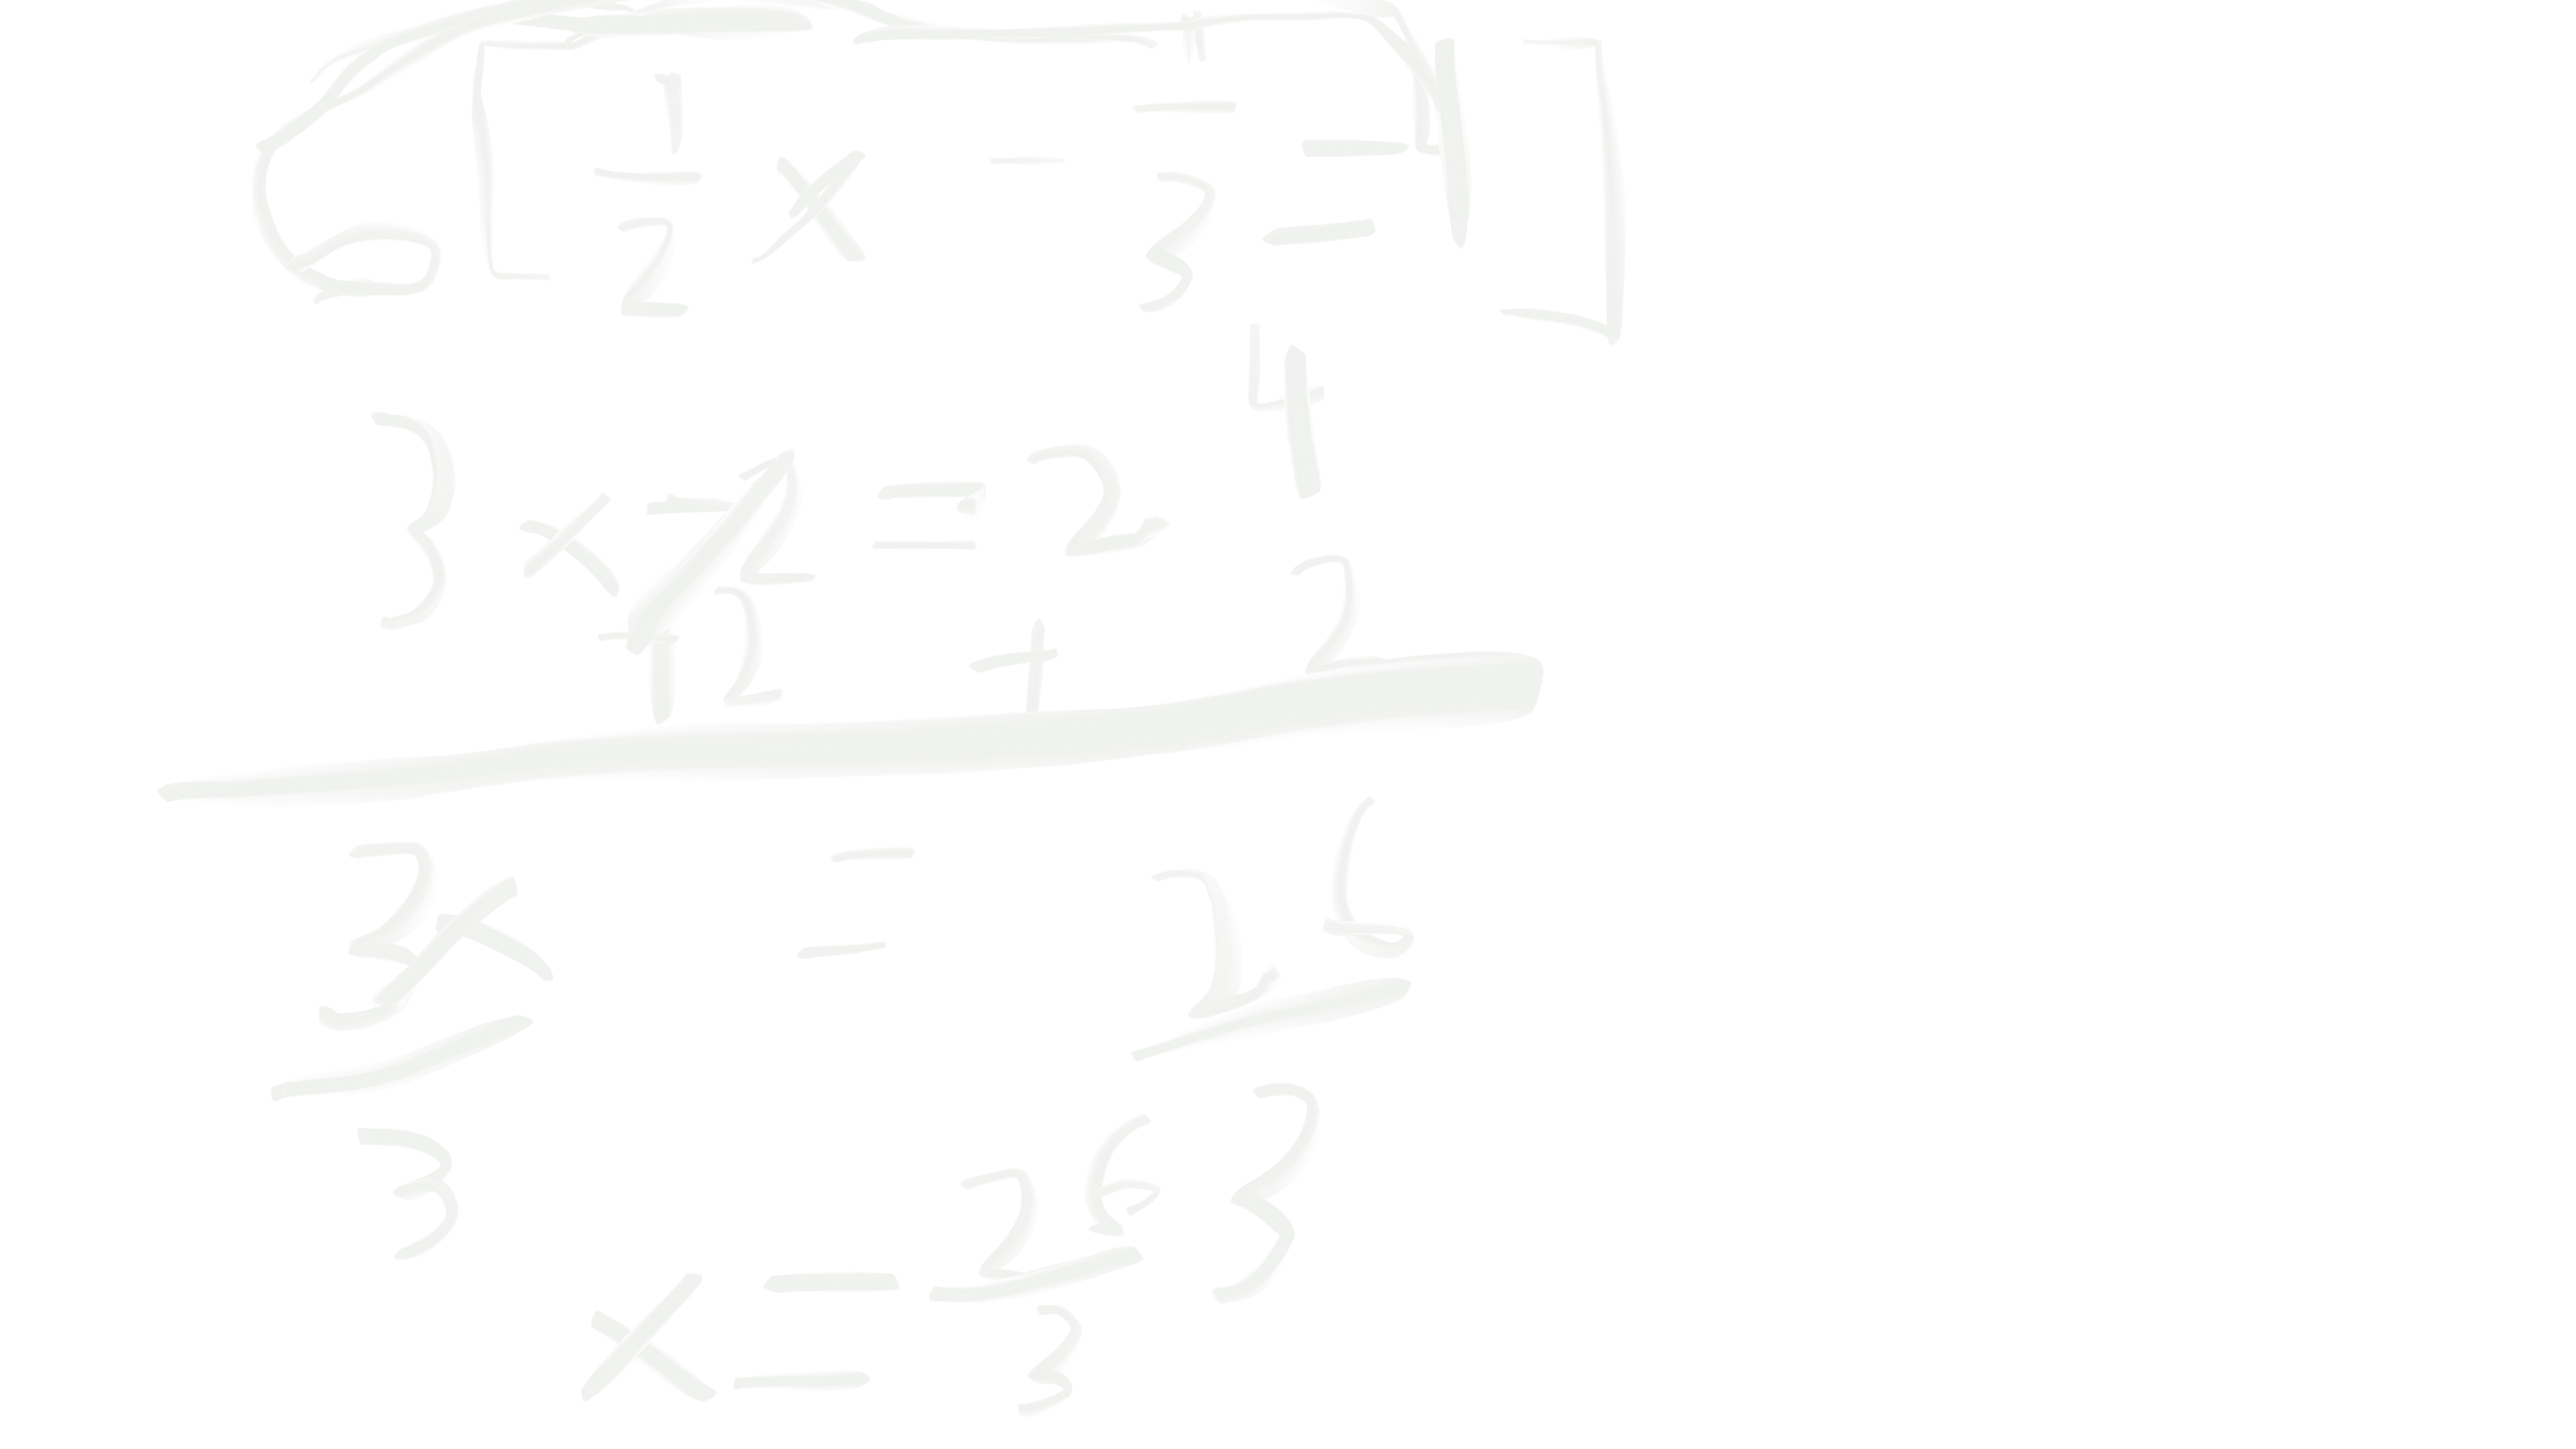 6 [ 1/2 x - 1/3 = 4 ]
3x - 2 = 24
+2 + 2
3x = 26
3 3
x = 26/3